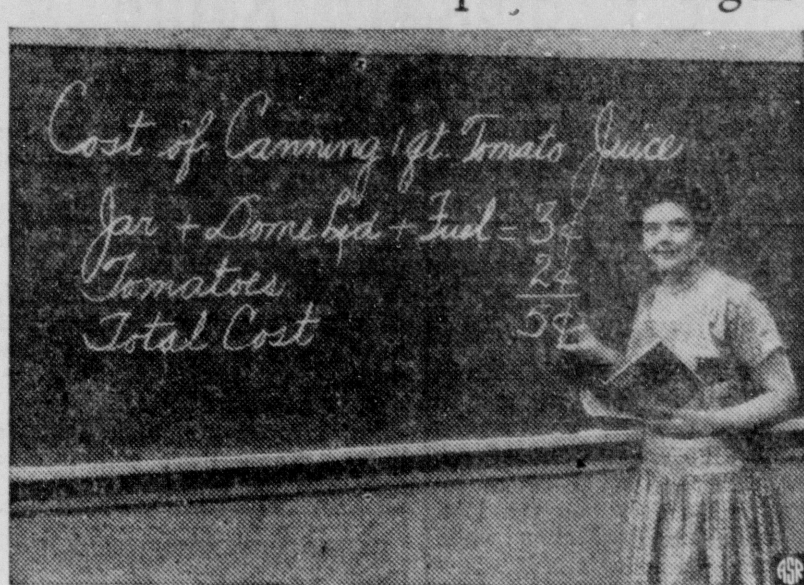 Cost of Canning 1 qt. Tomato Juice
Jar + Dome Lid + Fuel = 3¢
Tomatoes 2¢
Total Cost 5¢
ASP